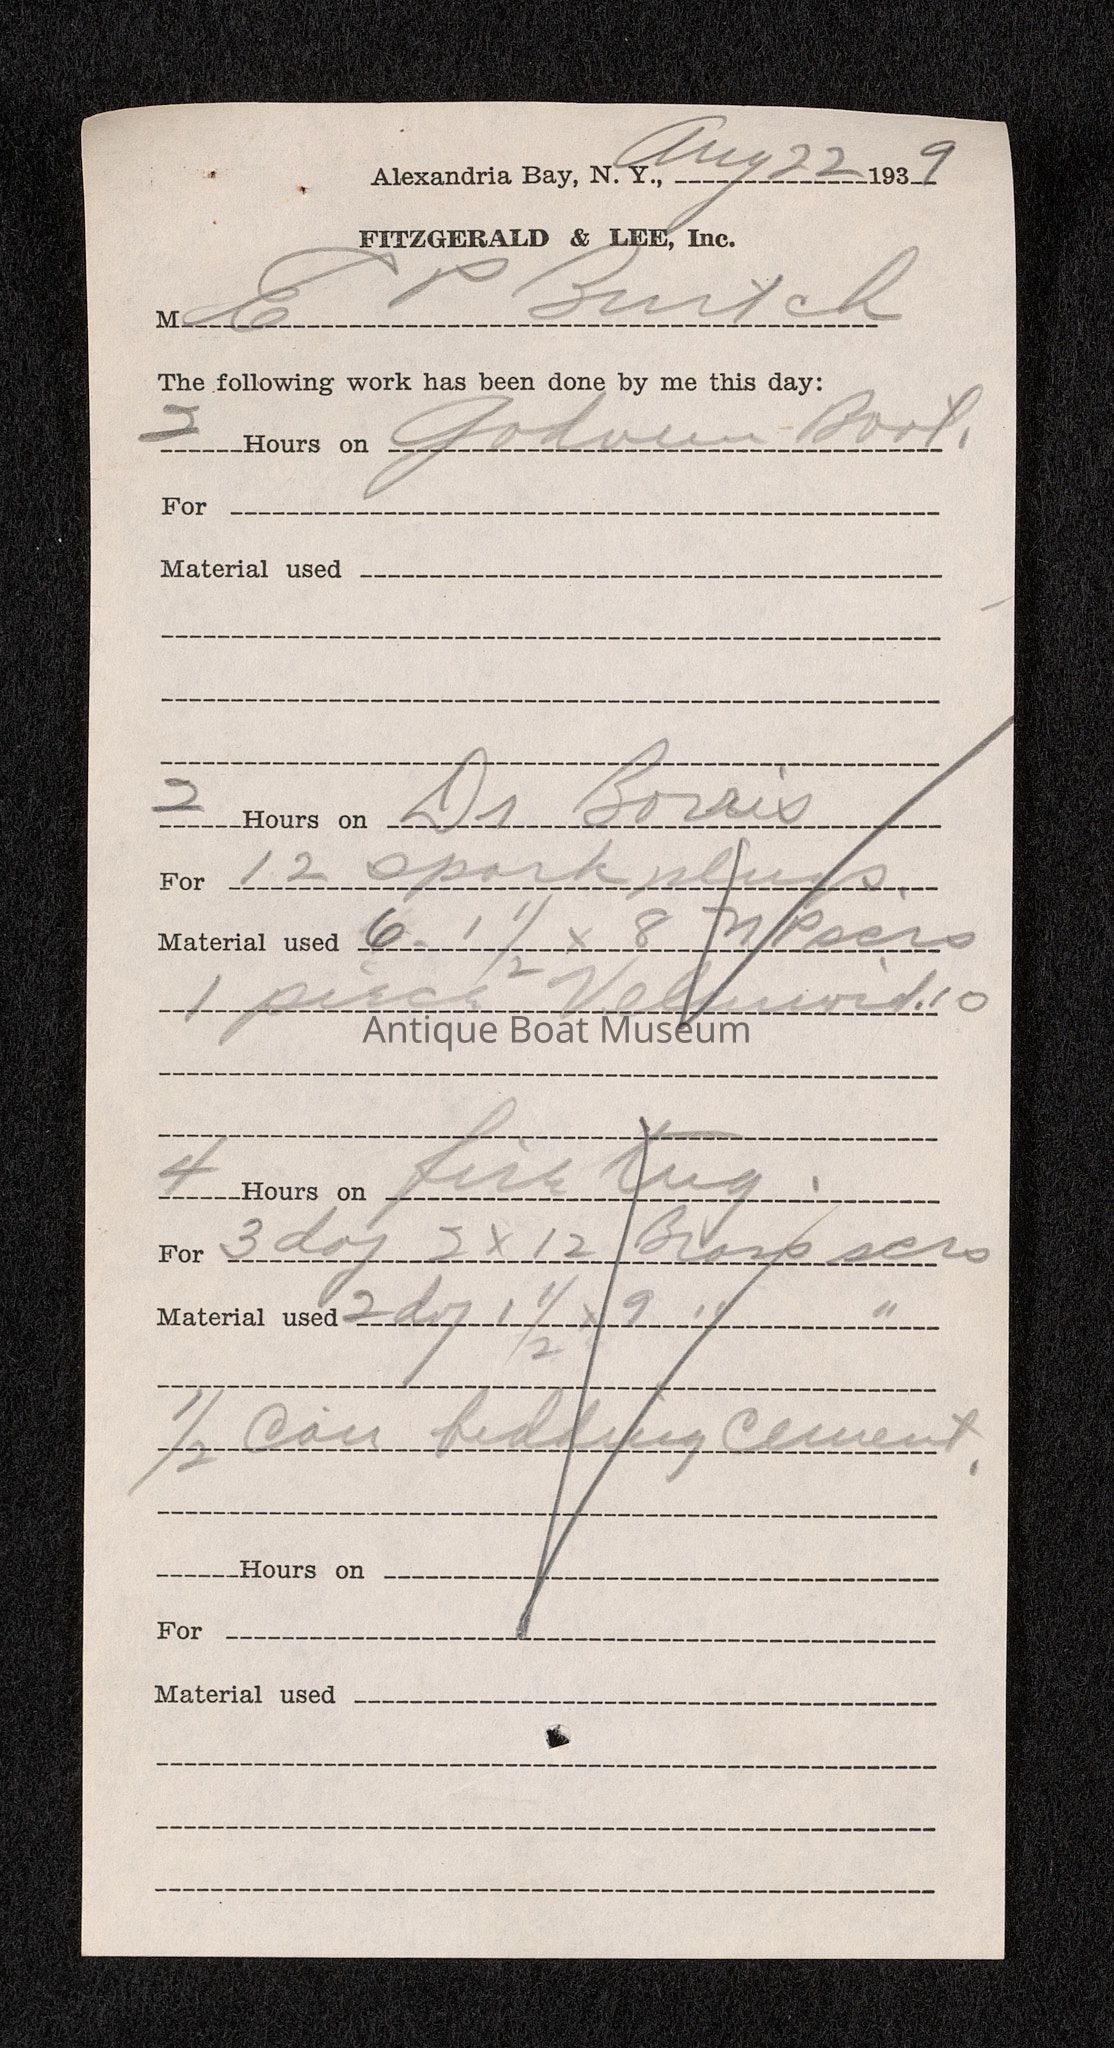 Alexandria Bay, N. Y., Aug 22 1939
FITZGERALD & LEE, Inc.
M E P Burtch
The following work has been done by me this day:
2 Hours on Boat.
For
Material used
2 Hours on Dr Borris
For 12 spark plugs.
Material used 6. 1 1/2 x 8
1 piece .10
Antique Boat Museum
4 Hours on fire tug.
For 3 doz 2 x 12 Brass scrs
Material used 2 doz 1 1/2 x 9 " "
1/2 can bedding cement.
Hours on
For
Material used